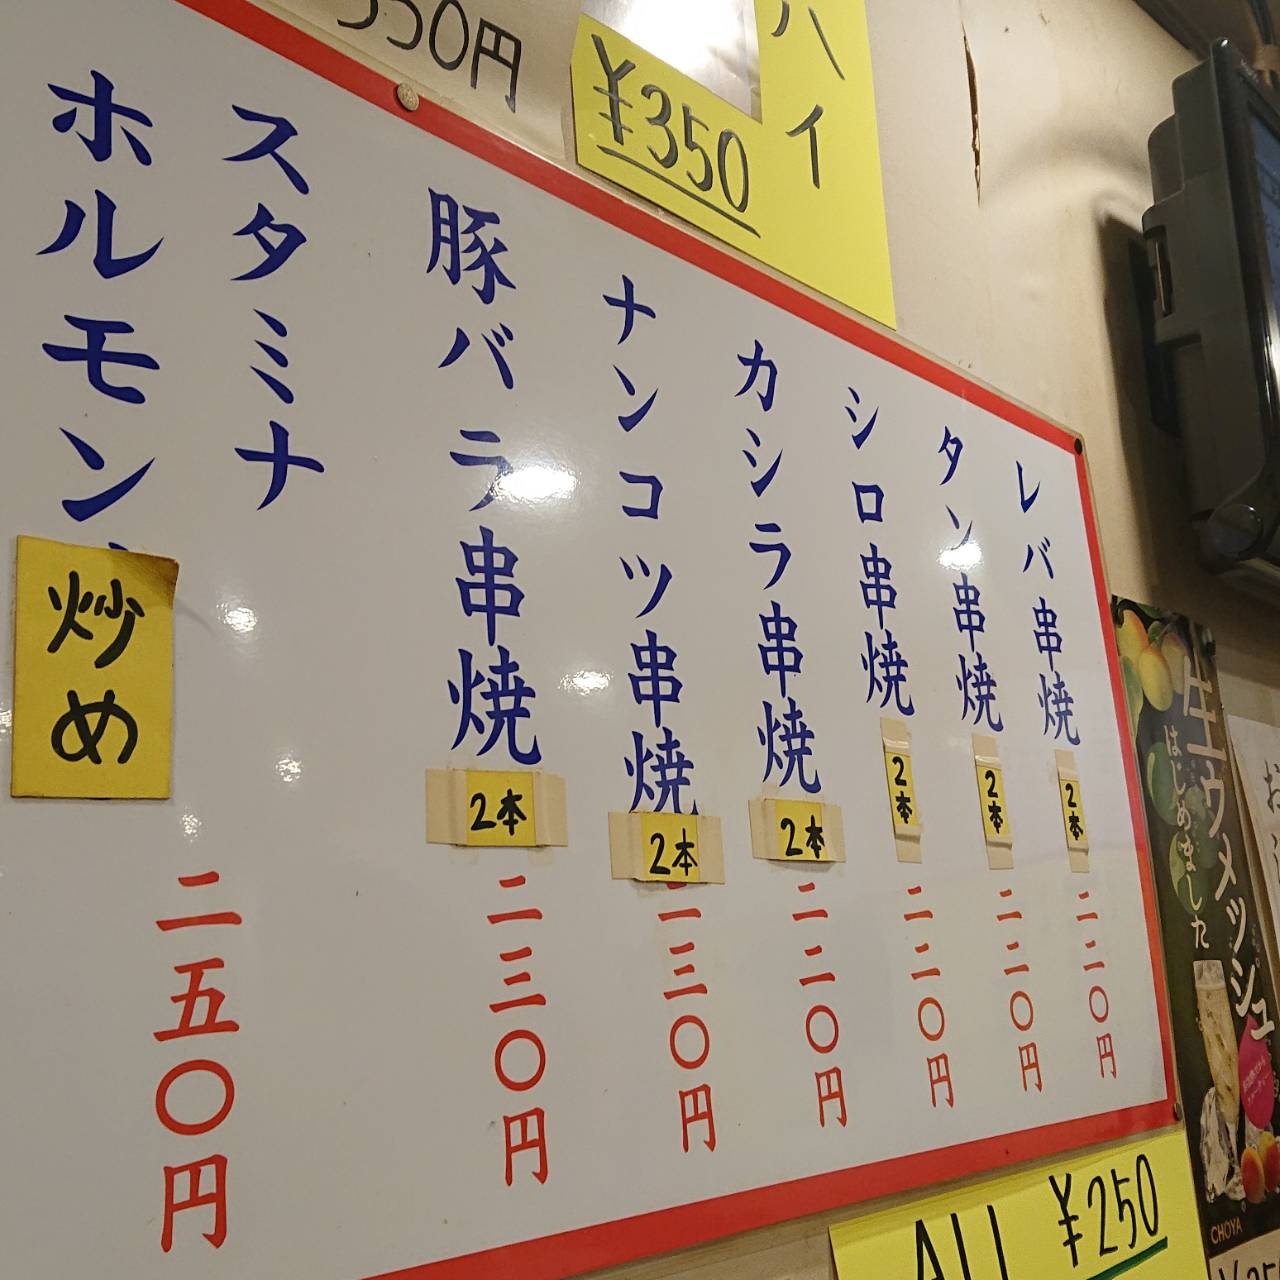 レバ串焼
2本
二二〇円
タン串焼
2本
二二〇円
シロ串焼
2本
二二〇円
カシラ串焼
2本
二二〇円
ナンコツ串焼
2本
二三〇円
豚バラ串焼
2本
二三〇円
スタミナ
ホルモン
炒め
二五〇円
550円
ハイ
¥350
ALL ¥250
生ウメッシュ
はじめました
CHOYA